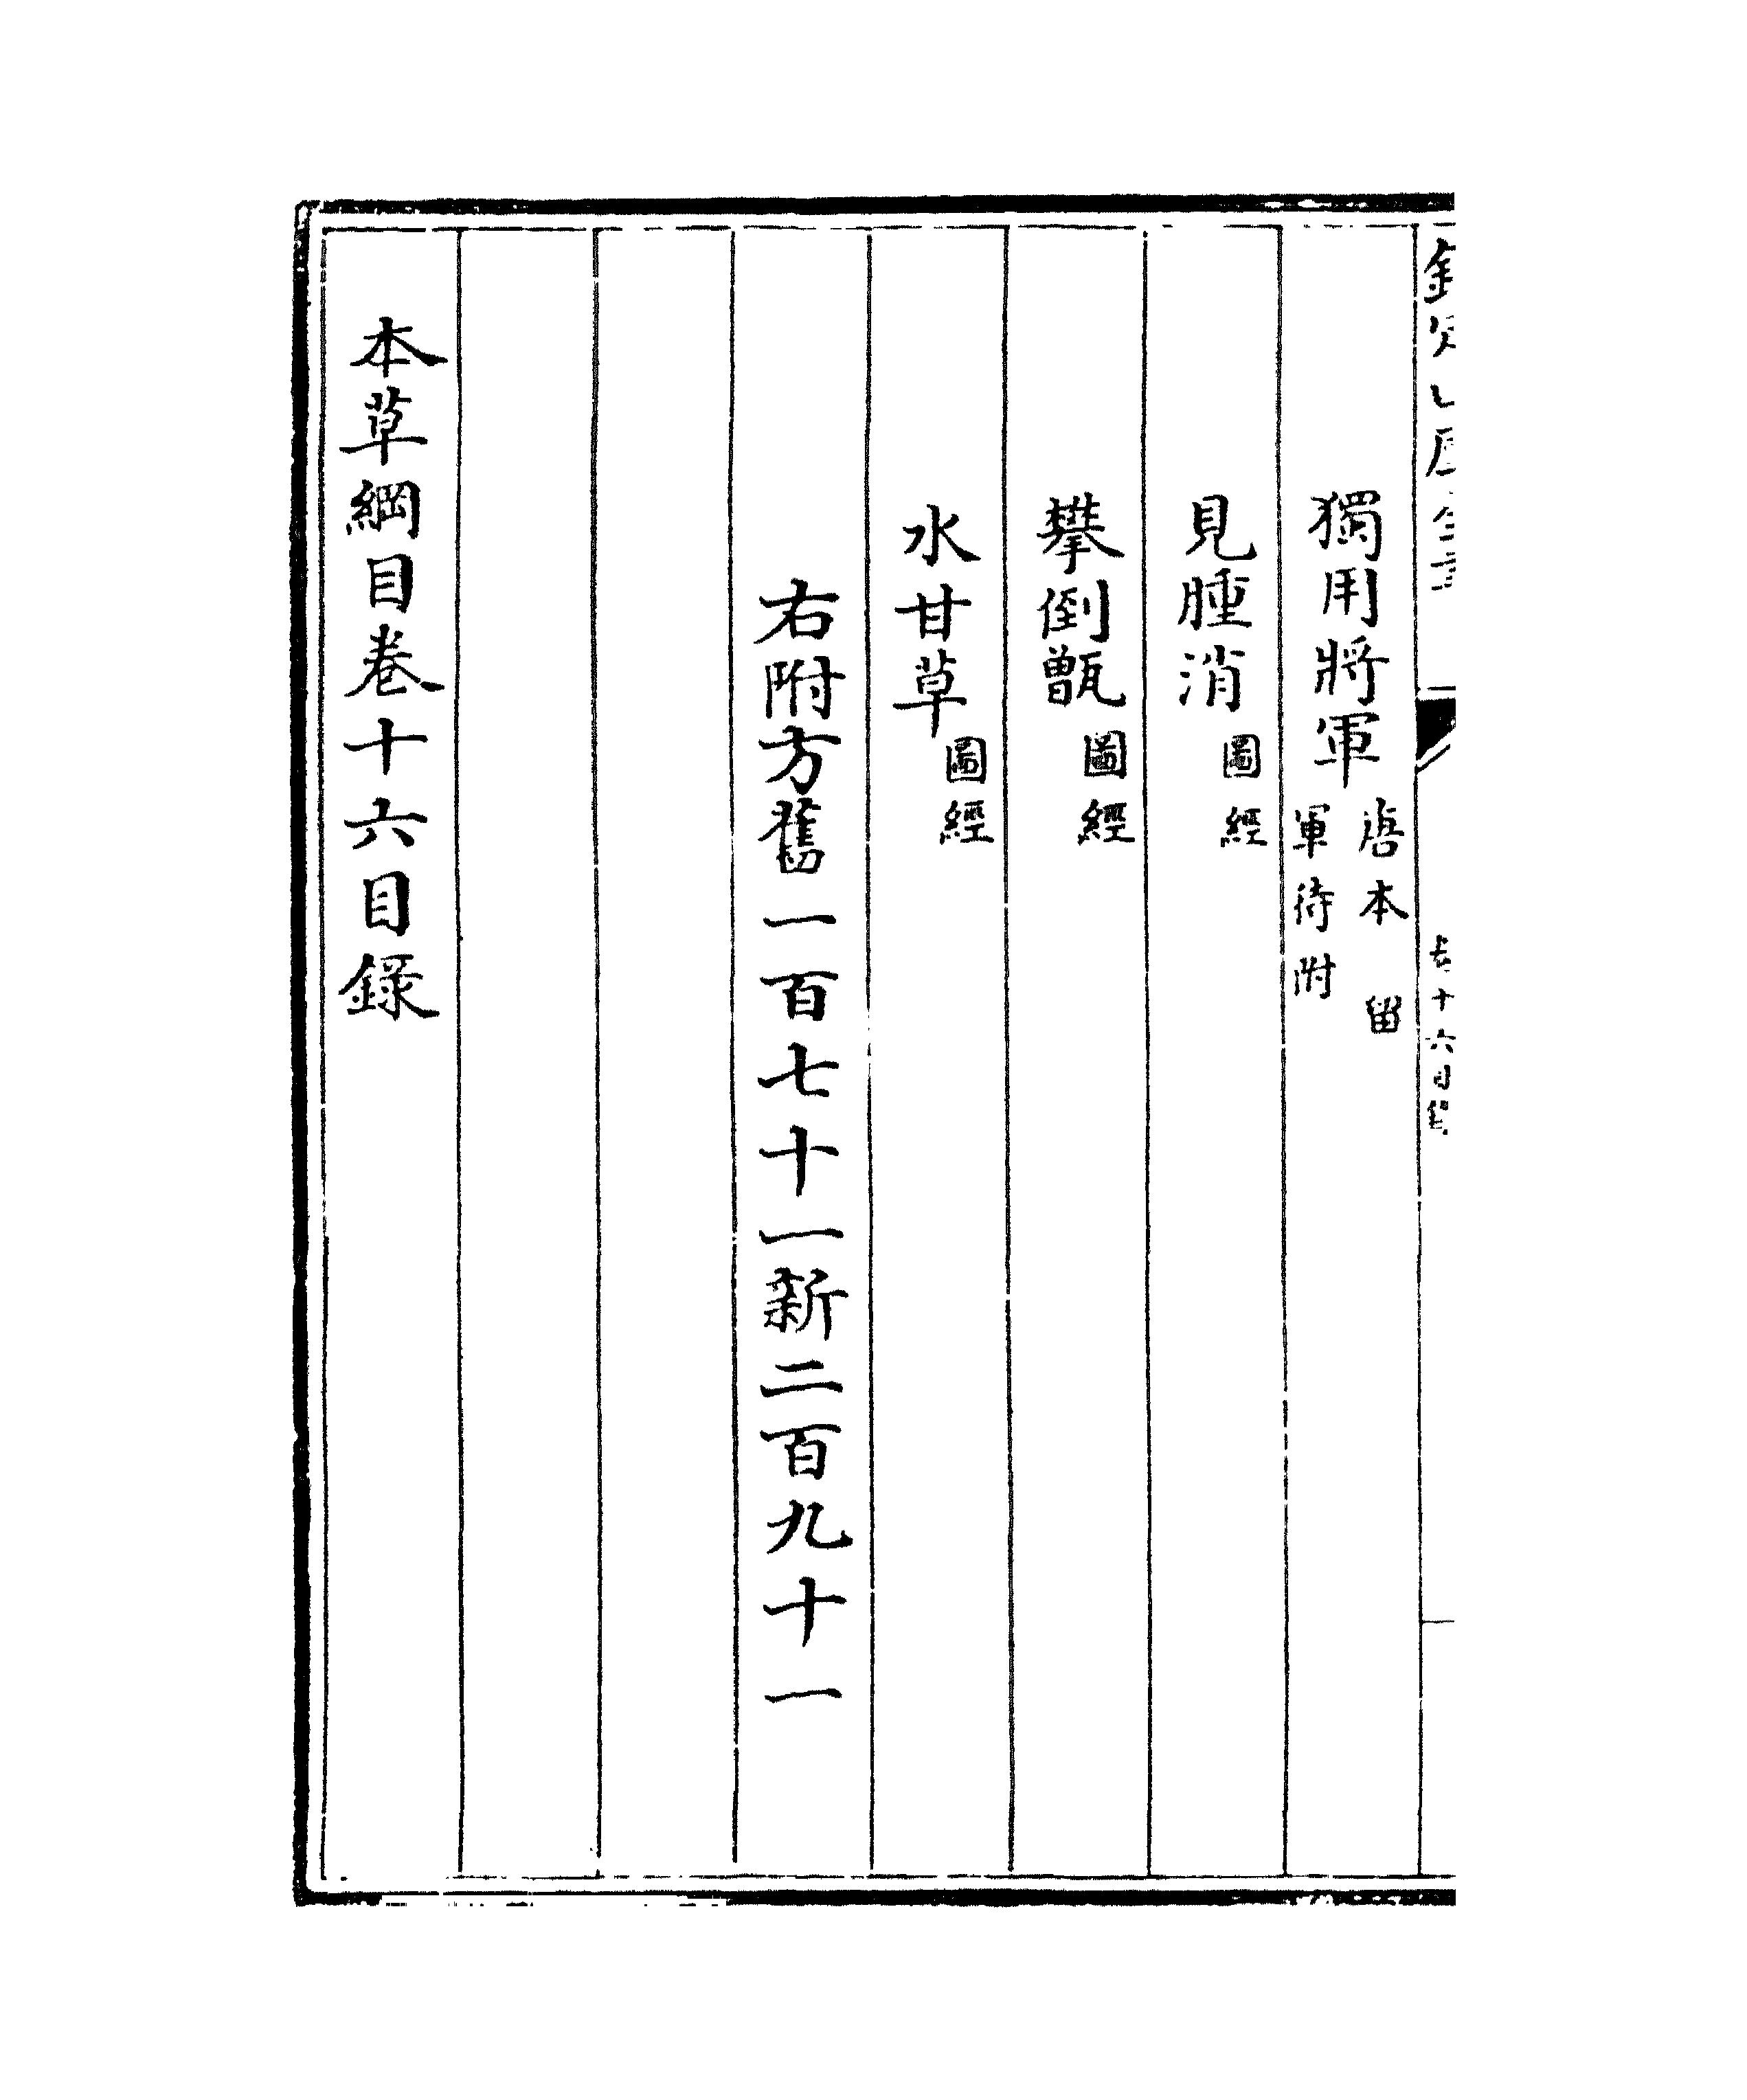 獨用將軍唐本 留軍待附
見腫消圖經
攀倒甑圖經
水甘草圖經
右附方舊一百七十一新二百九十一
本草綱目卷十六目錄